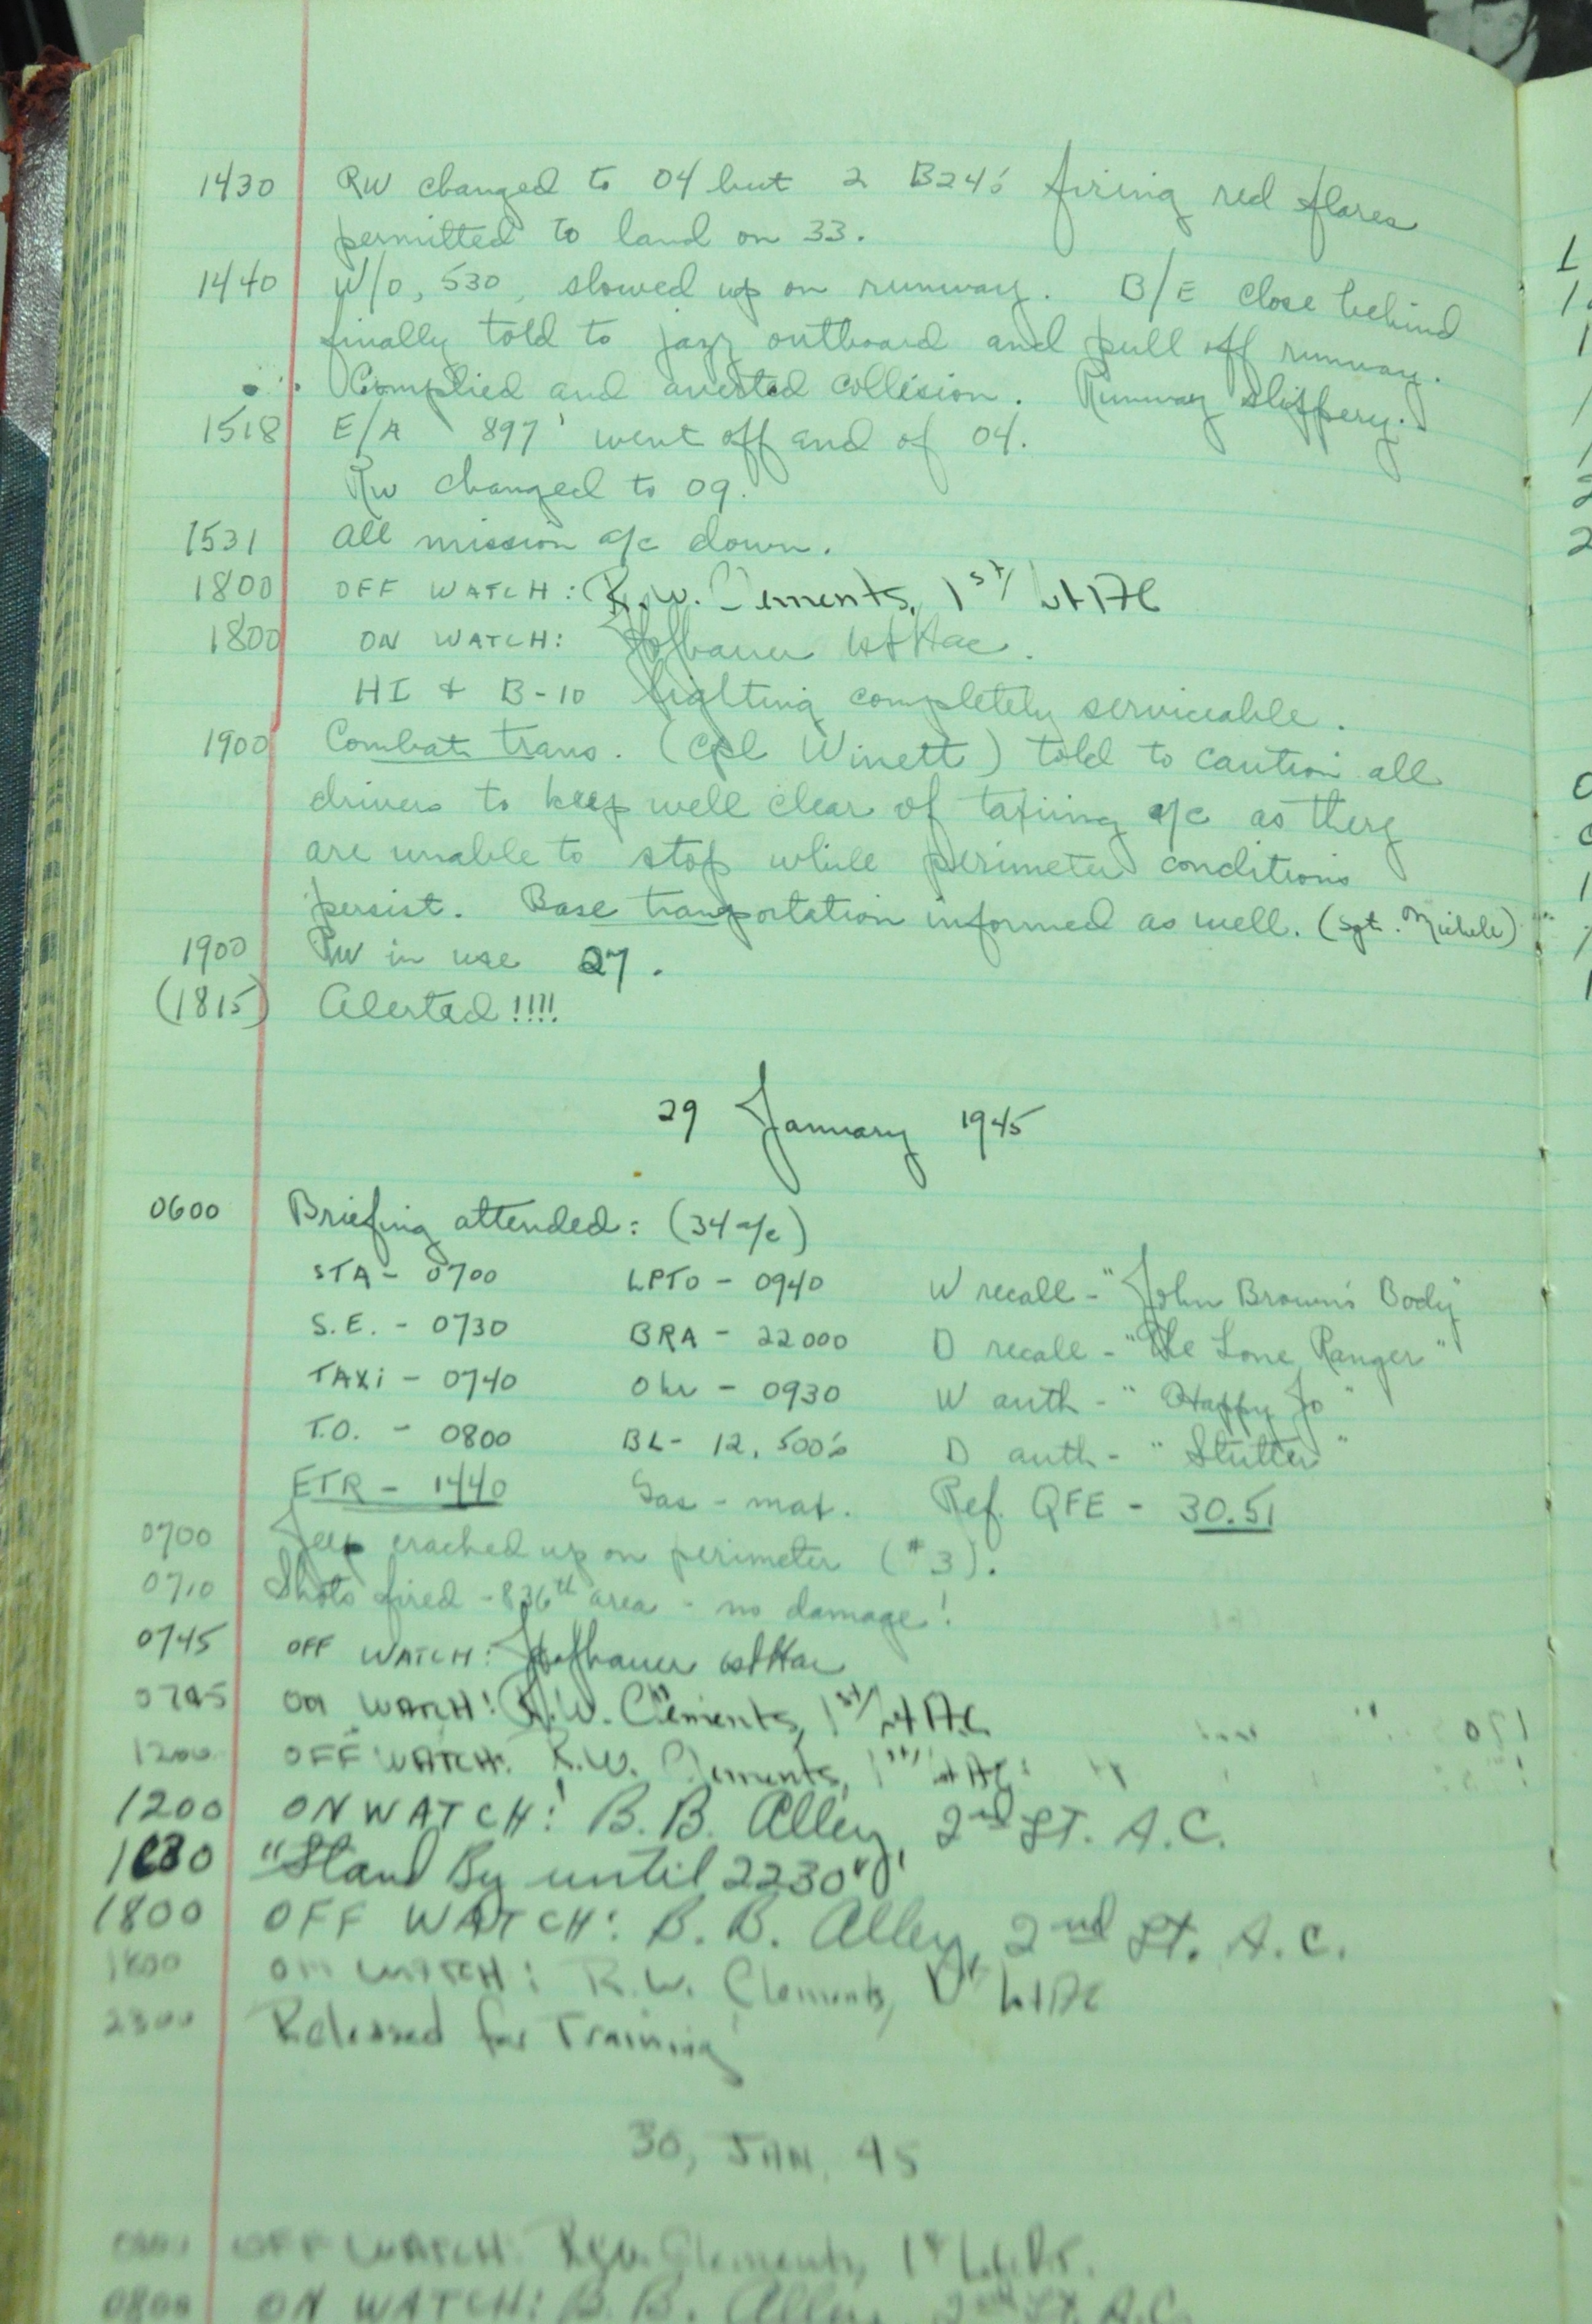 1430 RW changed to 04 but 2 B24's firing red flares
permitted to land on 33.
1440 W/O, 530, slowed up on runway. B/E close behind
finally told to jazz outboard and pull off runway.
Complied and averted collision. Runway slippery.
1518 E/A '897' went off end of 04.
RW changed to 09.
1531 All mission a/c down.
1800 OFF WATCH: R.W. Clements, 1st/ Lt AC
1800 ON WATCH: Hofbauer 1st Lt ac.
HI + B-10 lighting completely serviceable.
1900 Combat trans. (Cpl Winett) told to caution all
drivers to keep well clear of taxiing a/c as they
are unable to stop while perimeter conditions
persist. Base transportation informed as well. (Sgt.
1900 RW in use 27.
(1815) Alerted!!!!
29 January 1945
0600 Briefing attended: (34 a/c)
STA - 0700 LPTO - 0940 W recall - "John Brown's Body"
S.E. - 0730 BRA - 22000 D recall - "The Lone Ranger"
TAXI - 0740 - 0930 W auth - "Happy Jo"
T.O. - 0800 BL - 12, 500's D auth - "Stutter"
ETR - 1440 Gas - max. Ref. QFE - 30.51
0700 Jeep cracked up on perimeter (#3).
0710 Shots fired - 836th area - no damage!
0745 OFF WATCH: Hofbauer 1st Lt ac
0745 ON WATCH: R.W. Clements, 1st/ Lt AC
1200 OFF WATCH: R.W. Clements, 1st/ Lt AC
1200 ON WATCH: B.B. Alley, 2nd LT. A.C.
"Stand By until 2230"
1800 OFF WATCH: B.B. Alley, 2nd Lt. A.C.
1800 ON WATCH: R.W. Clements, 1st Lt AC
2300 Released for Training
30, JAN, 45
OFF WATCH: R.W. Clements, 1st Lt.
0800 ON WATCH: B.B. Alley, 2nd Lt. A.C.